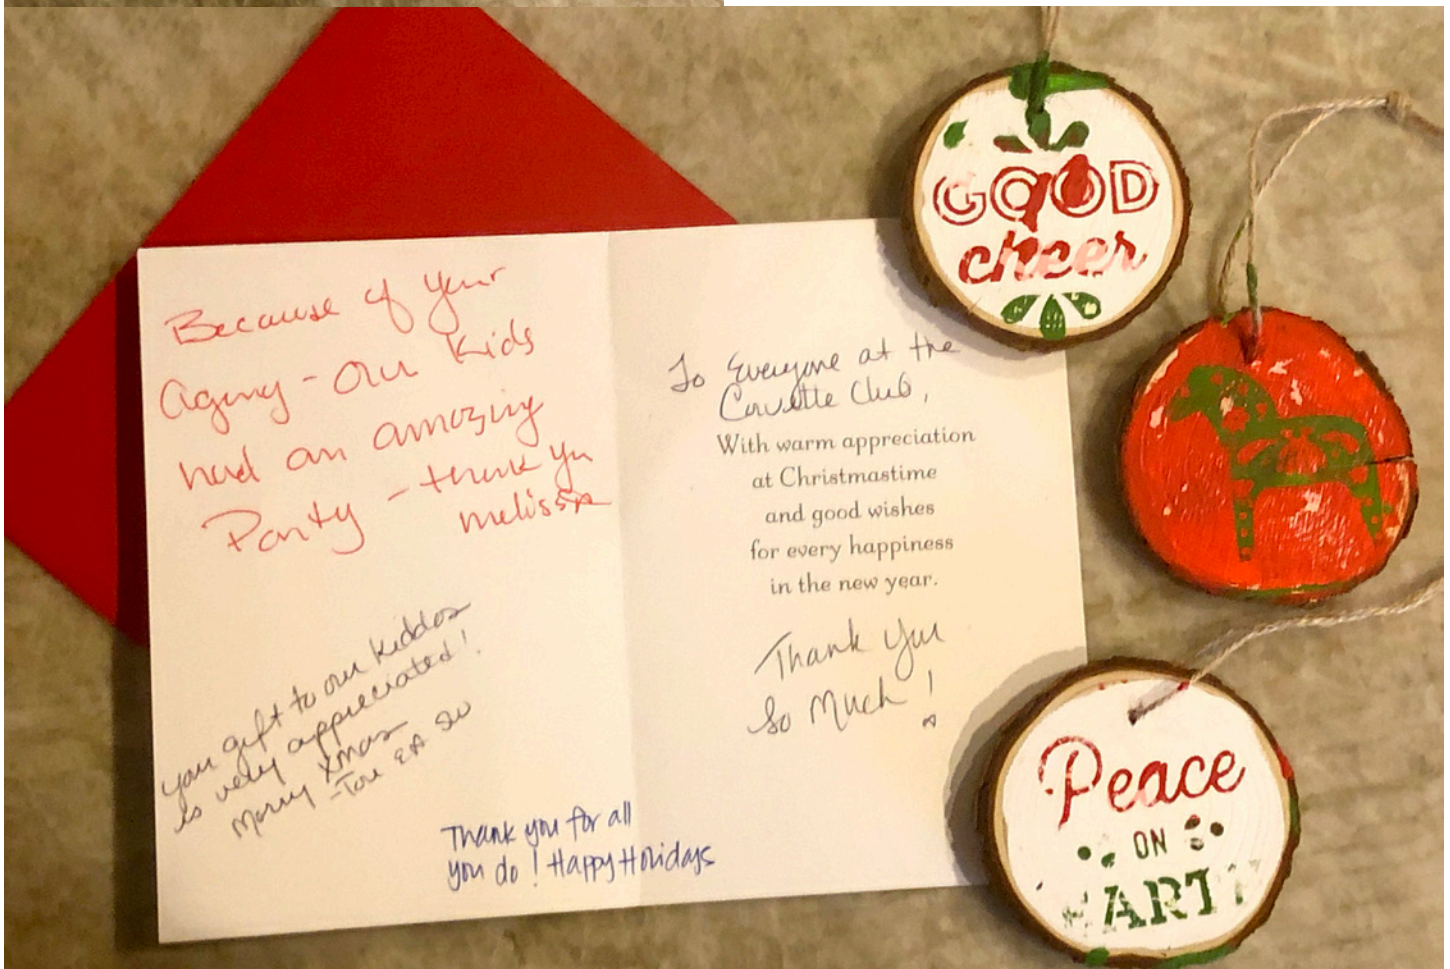 Because of your
agency - our kids
had an amazing
Party - thank you
melissa
your gift to our kiddos
is very appreciated!
Merry Xmas
Thank you for all
you do! Happy Holidays
To Everyone at the
Corvette Club,
With warm appreciation
at Christmastime
and good wishes
for every happiness
in the new year.
Thank you
So Much!
GOOD
cheer
Peace
ON
EARTH